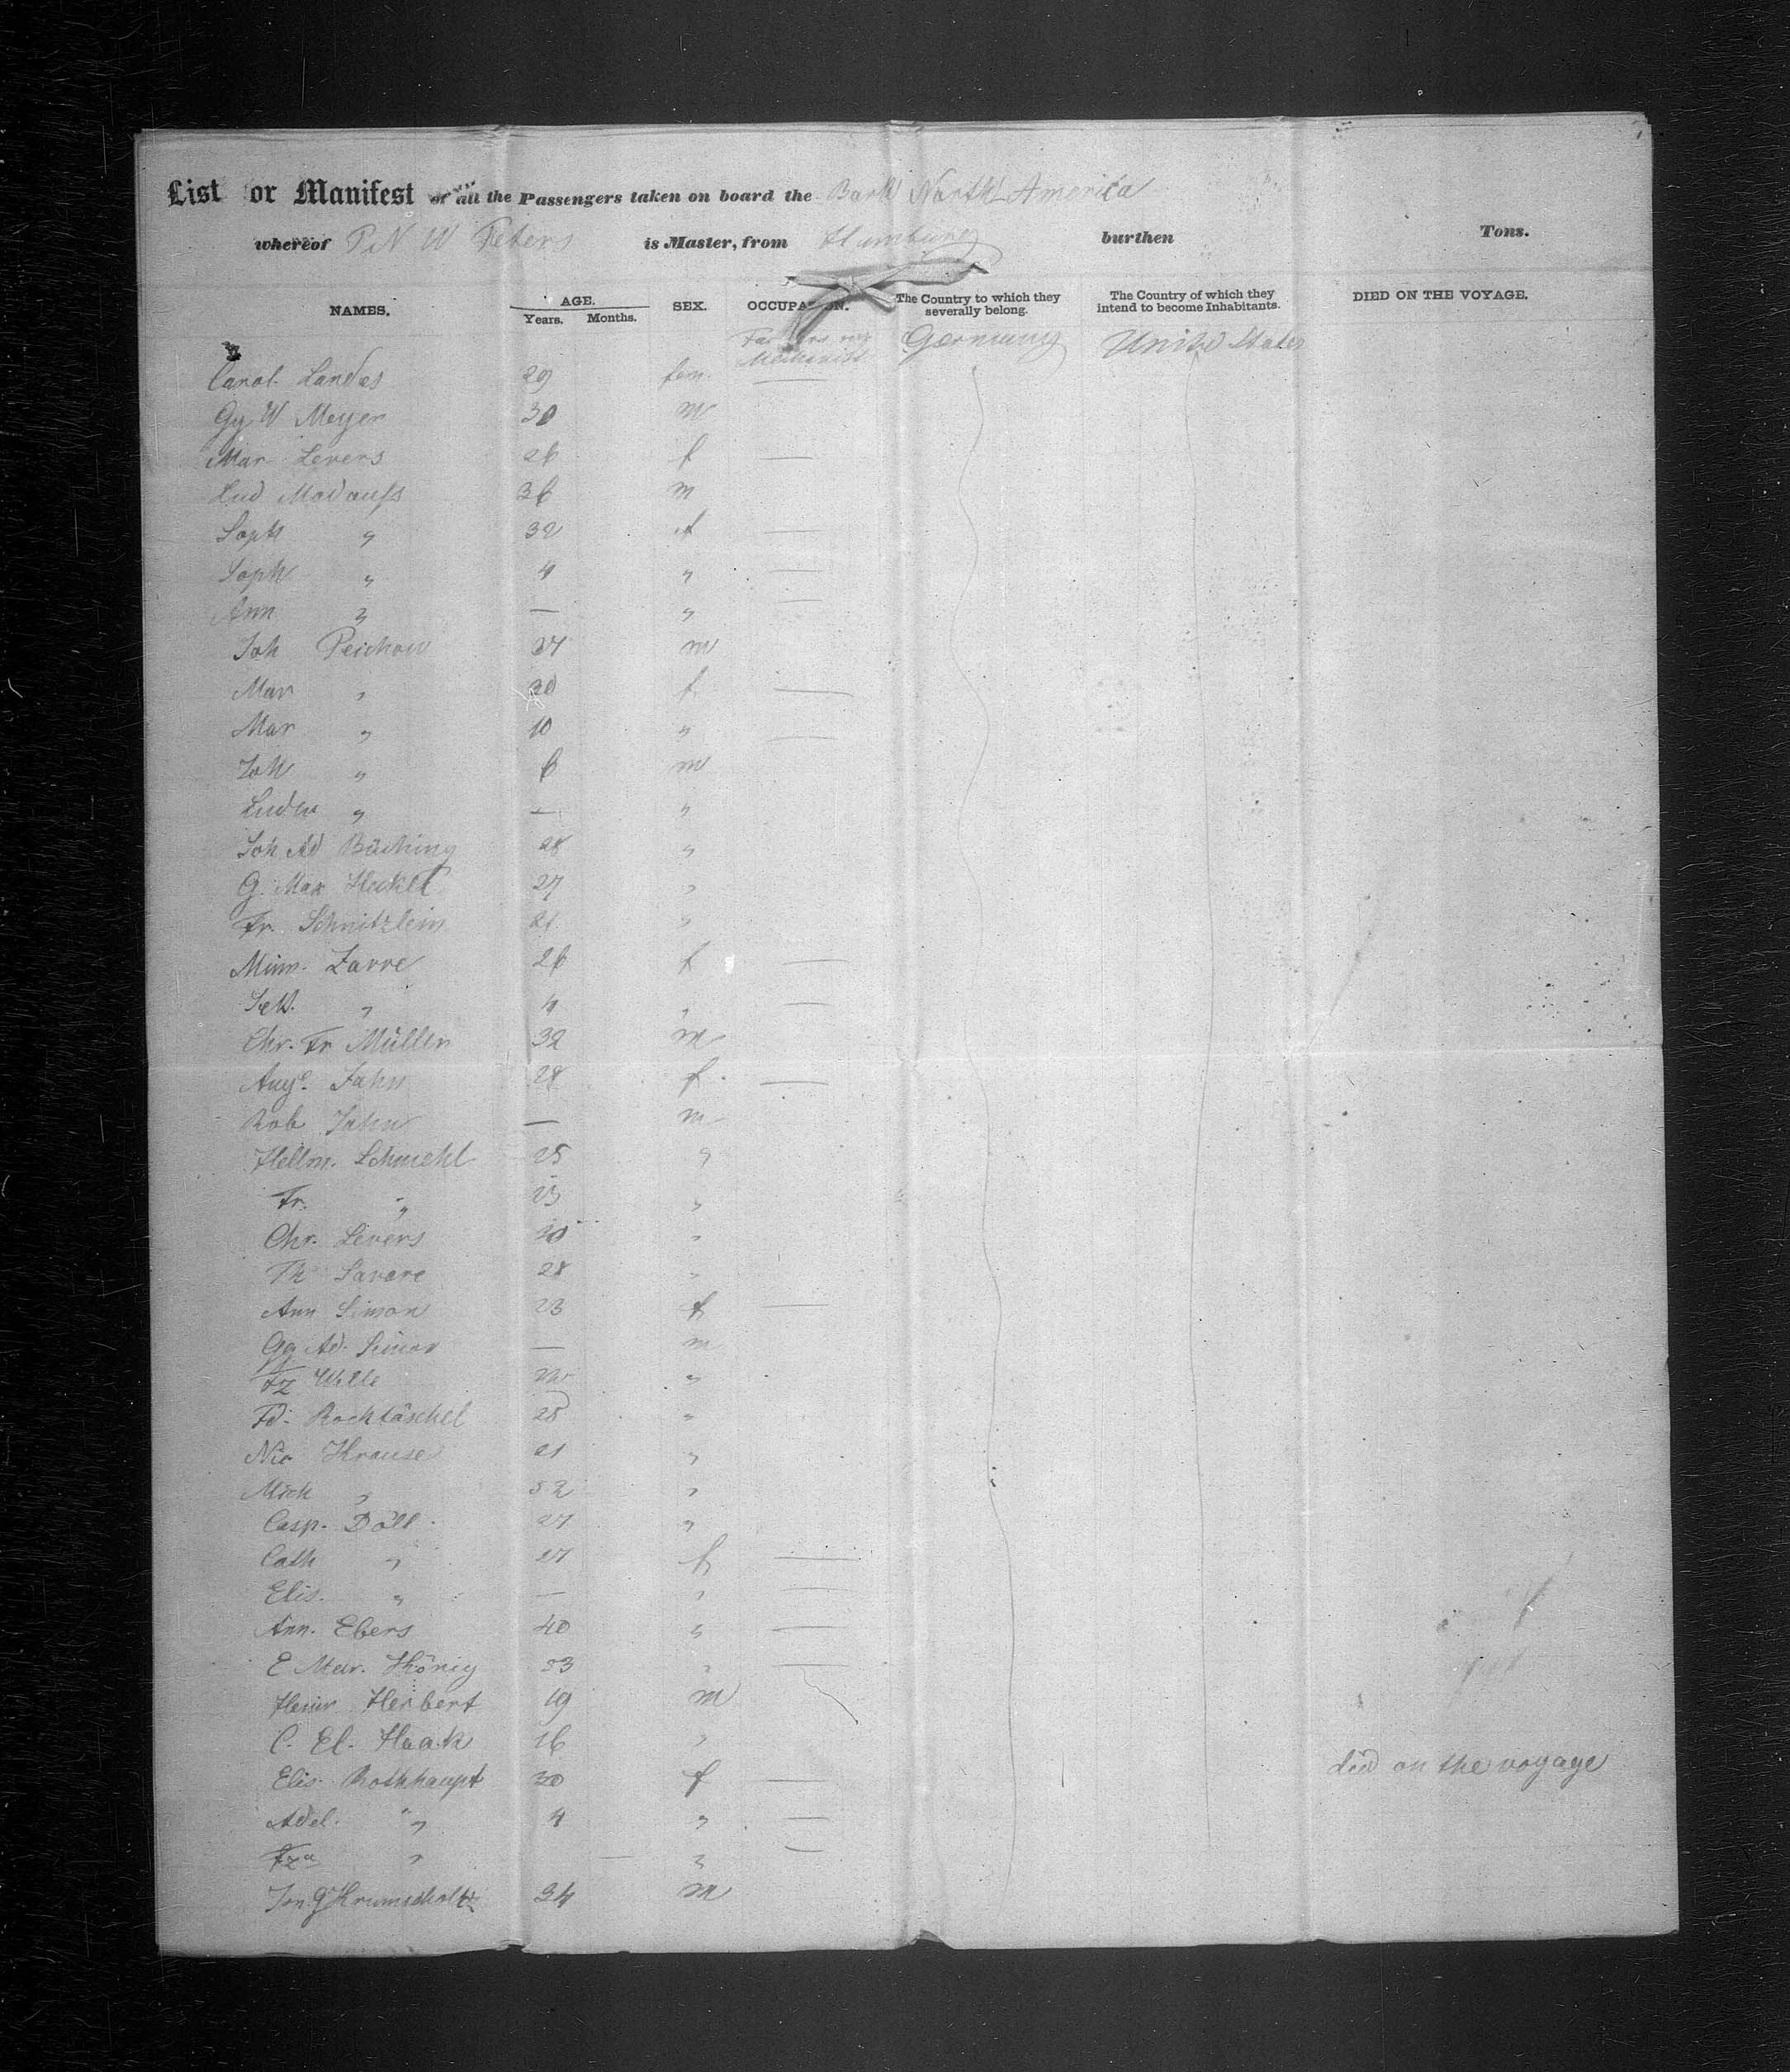 List or Manifest of all the Passengers taken on board the Bark North America
whereof P N W Peters is Master, from Hamburg burthen Tons.
NAMES. AGE. Years. Months. SEX. OCCUPATION. The Country to which they severally belong. The Country of which they intend to become Inhabitants. DIED ON THE VOYAGE.
Farmers Germany United States
Mechanics
Carol. Landes 29 fem. —
Gg W Meyer 30 m
Mar Levers 26 f —
Lud Modauss 36 m
Soph " 32 f —
Soph " 4 " —
Ann " — " —
Joh Peichow 37 m
Mar " 30 f —
Mar " 10 " —
Joh " 6 m
Ludw " — "
Joh Ad Büching 28 "
G. Max Heckel 27 "
Fr. Schnitzlein 21 "
Minn. Zarre 26 f —
" 4 " —
Chr. Fr Müller 32 m
Aug. Jahn 28 f —
Rob Jahn — m
Hellm. Schmehl 25 "
Fr. " 23 "
Chr. Levers 30 "
Th Savare 28 "
Ann Simon 23 f —
Gg Ad. Simon — m
Fz Wille "
Fd. Rocktäschel 28 "
Nic Krause 21 "
Mich " 52 "
Casp. Döll 27 "
Cath " 27 f —
Elis. " — " —
Ann. Ebers 40 " —
E Mar. König 53 " —
Heinr Herbert 19 m
C. El. Haak 16 "
Elis. Rothhaupt 30 f — died on the voyage
Adel. " 4 " —
Fza " — " —
Jon G Krumscholtz 34 m